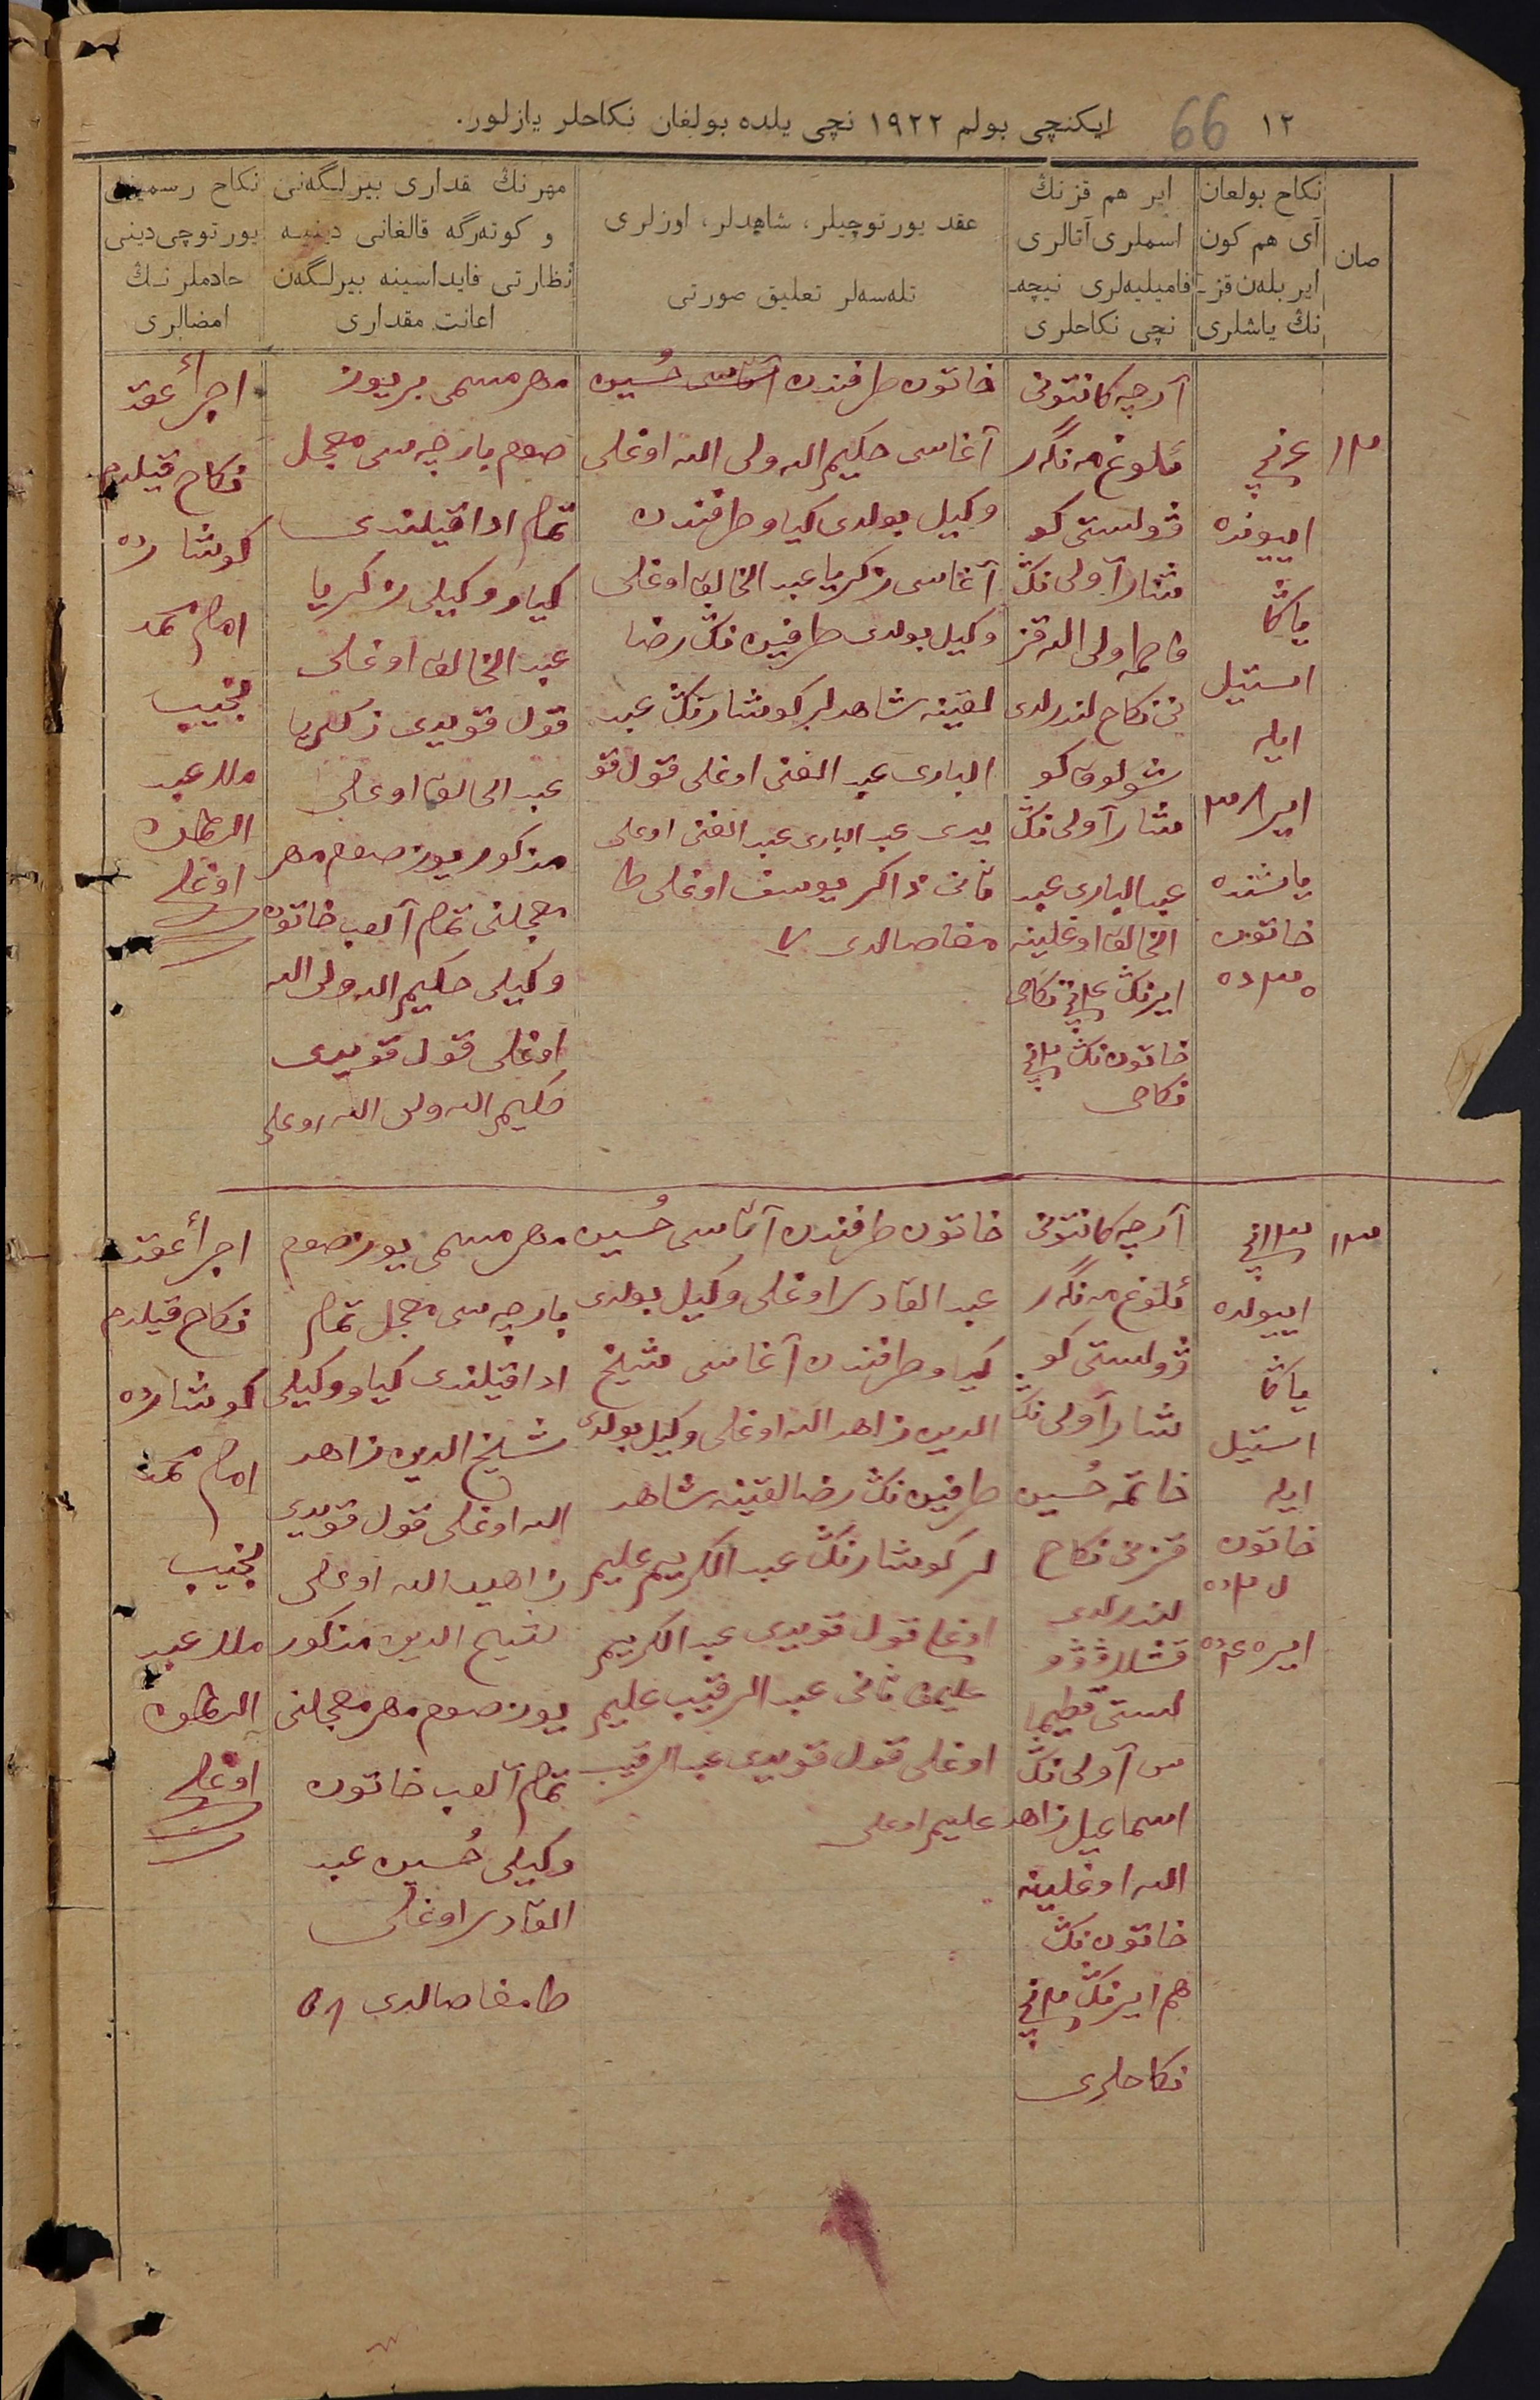 ۱۲
66
ایکنچی بولم ۱۹۲۲ نچی یلده بولغان نکاحلر یازلور.
صان
نکاح بولغان
آی هم کون
ایر بله‌ن قز-
نڭ یاشلری
ایر هم قزنڭ
اسملری آتالری
فامیلیه‌لری نیچه-
نچی نکاحلری
عقد یورتوچیلر، شاهدلر، اوزلری
تله‌سه‌لر تعلیق صورتی
مهرنڭ مقداری بیرلگه‌نی
و کوته‌رگه قالغانی دینیه
نظارتی فایداسینه بیرلگه‌ن
اعانت مقداری
نکاح رسمینی
یورتوچی دینی
خادملرنڭ
امضالری
۱۲
ایبونده
یاڭا
استیل
ایله
ایر
یاشنده
خاتون
آرچه کانتونی
ئولوغ مه‌نگه‌ر
ڤولستی کو
شار آولی نڭ
فاطمه ولی الله قز
نی نکاح لندرلدی
شولوق کو
شار آولی نڭ
عبد الباری عبد
الخالق اوغلینه
ایرنڭ نکاحی
خاتون نڭ
نکاحی
خاتون طرفندن آتاسی حُسین
آغاسی حکیم الله ولی الله اوغلی
وکیل بولدی کیاو طرفندن
آغاسی زکریا عبد الخالق اوغلی
وکیل بولدی طرفین نڭ رضا
لقینه شاهدلر کوشارنڭ عبد
الباری عبد الغنی اوغلی قول قو
یدی عبد الباری عبد الغنی اوغلی
ثانی ذاکر یوسف اوغلی طا
مغا صالدی
مهر مسمی بر یوز
صوم بارچه سی معجل
تمام ادا قیلندی
کیاو وکیلی زکریا
عبد الخالق اوغلی
قول قویدی زکریا
عبد الخالق اوغلی
مذکور یوز صوم مهر
معجلنی تمام آلعب خاتون
وکیلی حکیم الله ولی الله
اوغلی قول قویدی
حکیم الله ولی الله اوغلی
اجرأ عقد
نکاح قیلدم
کوشارده
امام محمد
نجیب
ملا عبد
اوغلی
۱۳
اییولده
یاڭا
استیل
ایله
خاتون
ایر
آرچه کانتونی
ئولوغ مه‌نگه‌ر
ڤولستی کو
شار آولی نڭ
خاتمه حُسین
قزنی نکاح
لندرلدی
لستی
س آولی نڭ
اسماعیل زاهد
الله اوغلینه
خاتون نڭ
هم ایرنڭ
نکاحلری
خاتون طرفندن آتاسی حُسین
عبد القادر اوغلی وکیل بولدی
کیاو طرفندن آغاسی شیخ
الدین زاهد الله اوغلی وکیل بولدی
طرفین نڭ رضالقینه شاهد
لر کوشارنڭ عبد الکریم علیم
اوغلی قول قویدی عبد الکریم
علیمف ثانی عبد الرقیب علیم
اوغلی قول قویدی عبد الرقیب
علیم اوغلی
مهر مسمی یوز صوم
بارچه سی معجل تمام
ادا قیلندی کیاو وکیلی
شیخ الدین زاهد
الله اوغلی قول قویدی
زاهد الله اوغلی
شیخ الدین مذکور
یوز صوم مهر معجلنی
تمام آلعب خاتون
وکیلی حُسین عبد
القادر اوغلی
طامغا صالدی
اجرأ عقد
نکاح قیلدم
کوشارده
امام محمد
نجیب
ملا عبد
اوغلی